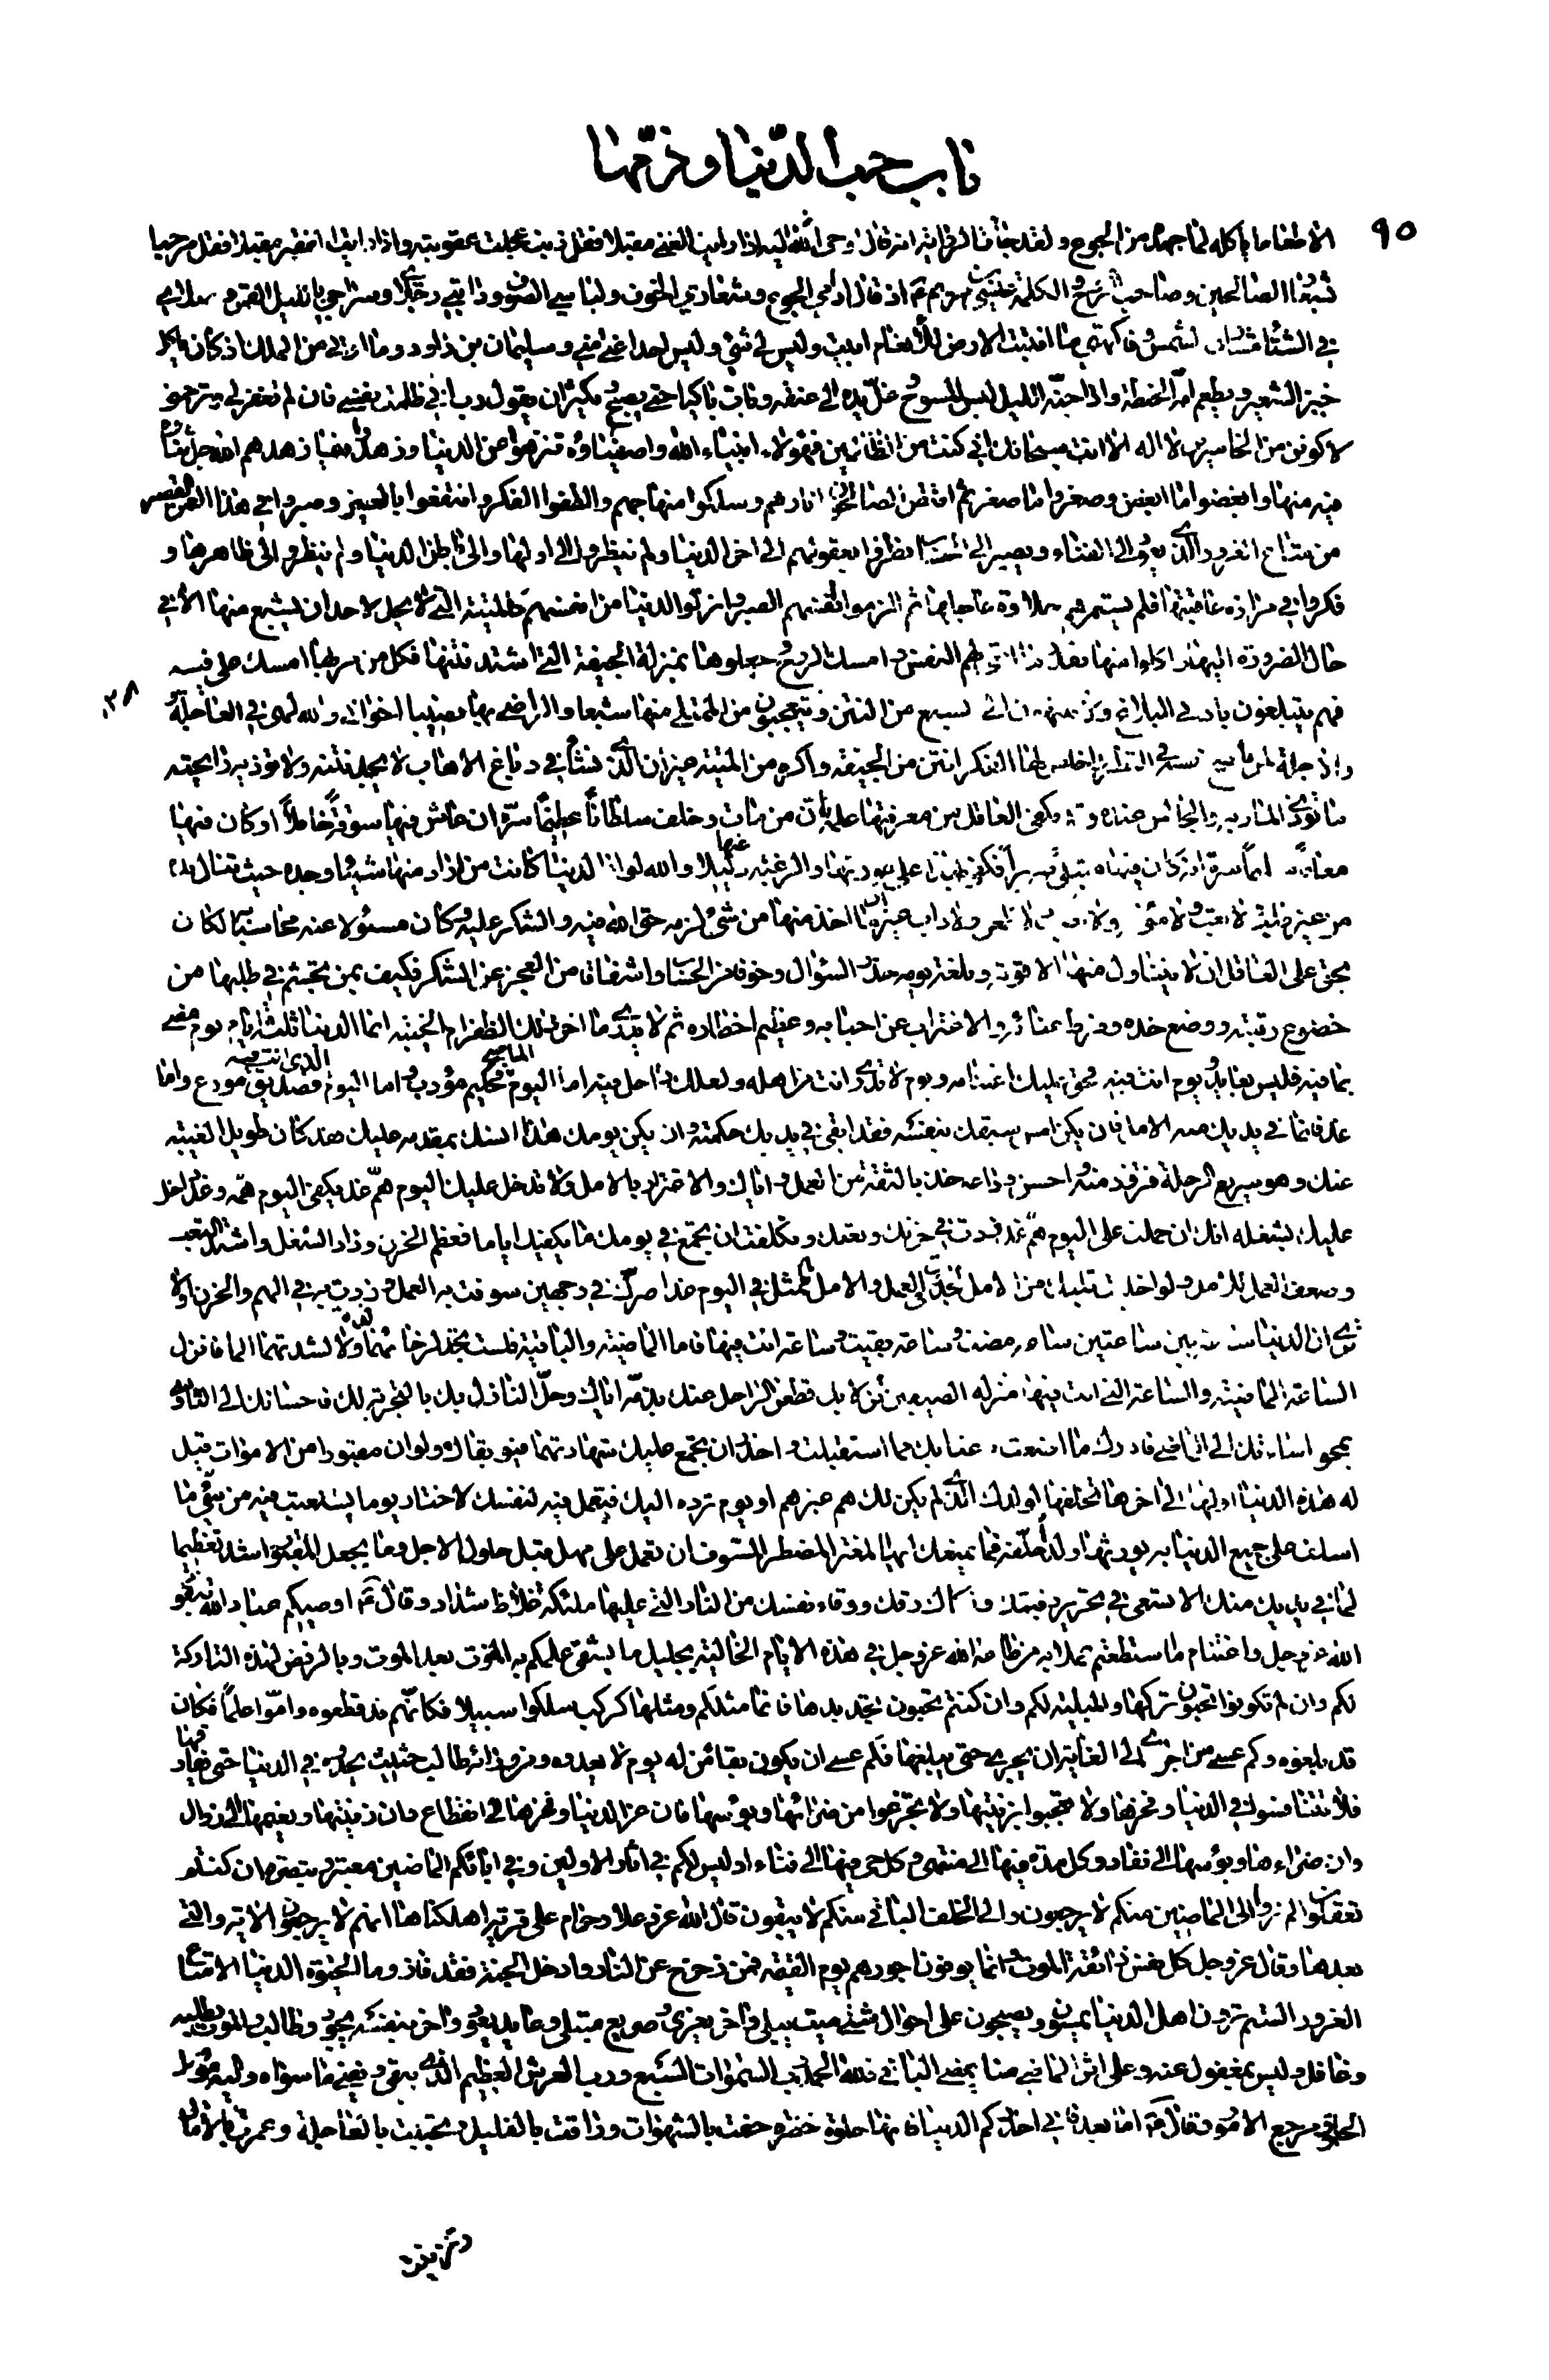 باب حب الدنيا وذمها
٩٥
الا طعاما ياكله لما جهده من الجوع ولقد جاءت الرواية انه قال اوحى الله اليه اذا رايت الغنى مقبلا فقل ذنب عجلت عقوبته واذا رايت الفقر مقبلا فقل مرحبا
بشعار الصالحين وصاحب الروح والكلمة عيسى بن مريم ع اذ قال ادامي الجوع وشعاري الخوف ولباسي الصوف ودابتي رجلاي وسراجي بالليل القمر
في الشتاء مشارق الشمس وفاكهتي ما انبتت الارض للانعام ابيت وليس لي شيء وليس احد اغنى مني وسليمان بن داود وما اوتي من الملك اذ كان ياكل
خبز الشعير ويطعم امه الحنطة واذا جنه الليل لبس المسوح وغل يده الى عنقه وبات باكيا حتى يصبح ويكثر ان يقول رب اني ظلمت نفسي فان لم تغفر لي وترحمني
لاكونن من الخاسرين لا اله الا انت سبحانك اني كنت من الظالمين فهؤلاء انبياء الله واصفياؤه تنزهوا عن الدنيا وزهدوا فيما زهدهم الله جل ثناؤه
فيه منها وابغضوا ما ابغض وصغروا ما صغر ثم اقتص الصالحون اثارهم وسلكوا منهاجهم والطفوا الفكر وانتفعوا بالعبر وصبروا في هذا العمر القصير
من متاع الغرور الذي يعود الى الفناء ويصير الى الحساب نظروا بعقولهم الى اخر الدنيا ولم ينظروا الى اولها والى باطن الدنيا ولم ينظروا الى ظاهرها و
فكروا في مرارة عاقبتها فلم يستمرهم حلاوة عاجلها ثم الزموا انفسهم الصبر وانزلوا الدنيا من انفسهم كالميتة التي لا يحل لاحد ان يشبع منها الا في
حال الضرورة اليها واكلوا منها بقدر ما ابقى لهم النفس وامسك الروح وجعلوها بمنزلة الجيفة التي اشتد نتنها فكل من مر بها امسك على فيه
فهم يتبلغون بادنى البلاغ ولا ينتهون الى الشبع من النتن ويتعجبون من الممتلي منها شبعا والراضي بها نصيبا اخواني والله لهي في العاجلة
٣٨
والاجلة لمن ناصح نفسه في النظر واخلص لها الفكر انتن من الجيفة واكره من الميتة غير ان الذي نشأ في دباغ الاهاب لا يجد نتنه ولا تؤذيه رائحته
ما تؤذي المار به والجالس عنده وقد يكفي العاقل من معرفتها علمه بان من مات وخلف سلطانا عظيما سره ان عاش فيها سوقة خاملا او كان فيها
معافا سليما سره ان كان فيها مبتلى ضريرا فكفى بهذا على عورتها والرغبة عنها دليلا والله لو ان الدنيا كانت من اراد منها شيئا وجده حيث تنال يده
من غير طلب ولا تعب ولا مؤنة ولا نصب ولا ظعن ولا داب غير ان ما اخذ منها من شيء لزمه حق الله فيه والشكر عليه وكان مسئولا عنه محاسبا به لكان
يحق على العاقل ان لا يتناول منها الا قوته وبلغة يومه حذر السؤال وخوفا من الحساب واشفاقا من العجز عن الشكر فكيف بمن تجشم في طلبها من
خضوع رقبته ووضع خده وفرط عنائه والاغتراب عن احبابه وعظيم اخطاره ثم لا يدري ما اخر ذلك الظفر ام الخيبة انما الدنيا ثلثة ايام يوم مضى
بما فيه فليس بعائد ويوم انت فيه فحق عليك اغتنامه ويوم لا تدري انت من اهله ولعلك راحل فيه اما اليوم الماضي فحكيم مؤدب واما اليوم الذي انت فيه فصديق مودع واما
غد فانما في يديك منه الامل فان يكن امس سبقك بنفسه فقد ابقى في يديك حكمته وان يكن يومك هذا انسك بمقدمه عليك فقد كان طويل الغيبة
عنك وهو سريع الرحلة فتزود منه واحسن وداعه خذ بالثقة من العمل واياك والاغترار بالامل ولا تدخل عليك اليوم هم غد يكفي اليوم همه وغد داخل
عليك بشغله انك ان حملت على اليوم هم غد زدت في حزنك وتعبك وتكلفت ان تجمع في يومك ما يكفيك اياما فعظم الحزن وزاد الشغل واشتد التعب
وضعف العمل للامل ولو اخليت قلبك من الامل لجددت في العمل والامل الممثل في اليوم غدا اضرك في وجهين سوفت به العمل وزدت به في الهم والحزن اولا
ترى ان الدنيا ساعة بين ساعتين ساعة مضت وساعة بقيت وساعة انت فيها فاما الماضية والباقية فلست تجد لرخائهما لذة ولا لشدتهما الما فانزل
الساعة الماضية والساعة التي انت فيها منزلة الضيفين نزلا بك فظعن الراحل عنك بذمه اياك وحل النازل بك بالتجربة لك فاحسانك الى الثاوي
يمحو اساءتك الى الماضي فادرك ما اضعت عتابك مما استقبلت واحذر ان تجمع عليك شهادتهما فيوبقاك ولو ان مقبورا من الاموات قيل
له هذه الدنيا اولها الى اخرها تخلفها لولدك الذي لم يكن لك هم غيرهم او يوم نرده اليك فتعمل فيه لنفسك لاختار يوما يستعتب فيه من سيء ما
اسلف على جميع الدنيا به يورثها ولدا خلفه فما يمنعك ايها المغتر المضطر المسوف ان تعمل على مهل قبل حلول الاجل وما يجعل المقبور اشد تعظيما
لما في يديك منك الا تسعى في تحرير رقبتك وفكاك رقك ووقاء نفسك من النار التي عليها ملئكة غلاظ شداد وقال ع اوصيكم عباد الله بتقوى
الله عز وجل واغتنام ما استطعتم عملا به من طاعة الله عز وجل في هذه الايام الخالية بجليل ما يشقى عليكم به الفوت بعد الموت وبالرفض لهذه التاركة
لكم وان لم تكونوا تحبون تركها والمبلية لكم وان كنتم تحبون تجديدها فانما مثلكم ومثلها كركب سلكوا سبيلا فكانهم قد قطعوه واموا علما فكان
قد بلغوه وكم عسى من اجرى الى الغاية ان يجري حتى يبلغها فكم عسى ان يكون بقاء من له يوم لا يعدوه ومن ورائه طالب حثيث يحدوه في الدنيا حتى يفارقها
فلا تتنافسوا في الدنيا وفخرها ولا تعجبوا بزينتها ولا تجزعوا من ضرائها وبؤسها فان عز الدنيا وفخرها الى انقطاع وان زينتها ونعيمها الى زوال
وان ضراءها وبؤسها الى نفاد وكل مدة فيها الى منتهى وكل حي فيها الى فناء اوليس لكم في اثار الاولين وفي ابائكم الماضين معتبر وتبصرة ان كنتم
تعقلون الم تروا الى الماضين منكم لا يرجعون والى الخلف الباقي منكم لا يبقون قال الله عز وعلا وحرام على قرية اهلكناها انهم لا يرجعون الاية والتي
بعدها وقال عز وجل كل نفس ذائقة الموت وانما توفون اجوركم يوم القيمة فمن زحزح عن النار وادخل الجنة فقد فاز وما الحيوة الدنيا الا متاع
الغرور الستم ترون اهل الدنيا يمسون ويصبحون على احوال شتى ميت يبكى واخر يعزى وصريع مبتلى وعايد يعود واخر بنفسه يجود وطالب والموت يطلبه
وغافل وليس بمغفول عنه وعلى اثر الماضي منا يمضي الباقي فلله الحمد رب السموات السبع ورب العرش العظيم الذي يبقى ويفنى ما سواه واليه موئل
الخلق ومرجع الامور وقال ع اما بعد فاني احذركم الدنيا فانها حلوة خضرة حفت بالشهوات وراقت بالقليل وتحببت بالعاجلة وعمرت بالامال
وتزينت